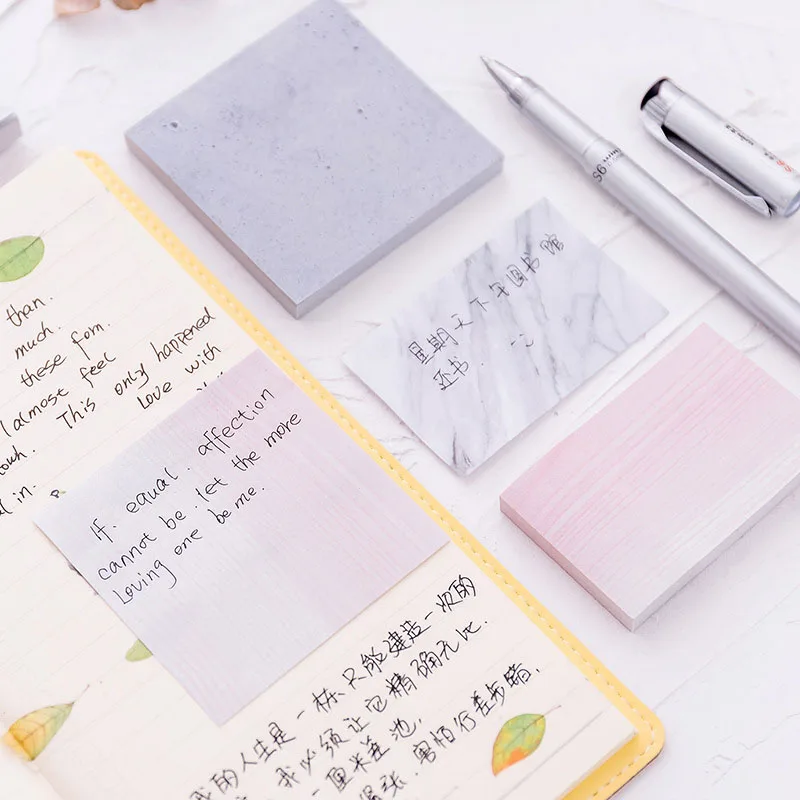 than.
much.
these fom.
almost feel
This only happened
Love with
in.
If. equal. affection
cannot be. let the more
Loving one be me.
星期天下午图书馆
还书.
的人生是一栋只能建造一次的
我必须让它精确无比.
一厘米差池,
紧张. 害怕行差步错.
95